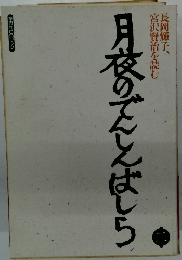 長岡輝子、
宮沢賢治を読む
月夜のでんしんばしら